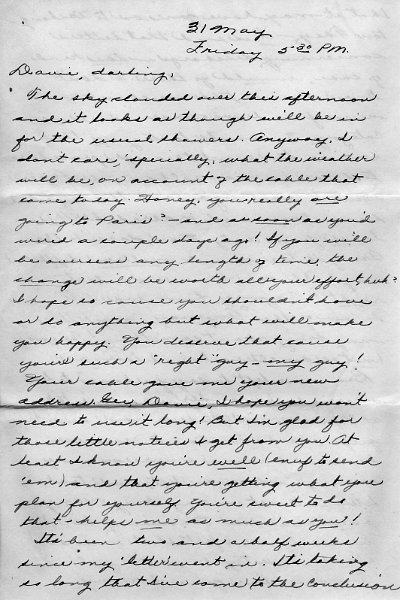 31 May
Friday 5:30 P.M.
Davie, darling,
The sky clouded over this afternoon
and it looks as though we'll be in
for the usual showers. Anyway, I
don't care, 'specially, what the weather
will be, on account of the cable that
came to-day. Honey, you really are
going to Paris? – and as soon as you'd
word a couple days ago! If you will
be overseas any length of time, the
change will be worth all your effort, huh?
I hope so cause you shouldn't have
or do anything but what will make
you happy. You deserve that cause
you're such a "right" guy – my guy!
Your cable gave me your new
address. Gee Davie, I hope you won't
need to use it long! But I'm glad for
those little notices I get from you. At
least I know you're well (enuf to send
'em) and that you're getting what you
plan for yourself. You're sweet to do
that – helps me as much as you!
It's been two and a half weeks
since my 'letter' went in. It's taking
so long that I've come to the conclusion